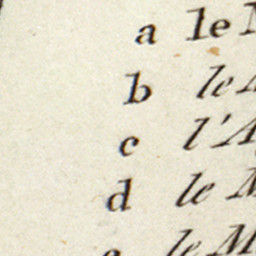 a le
b le
c l'A
d le M
e le M